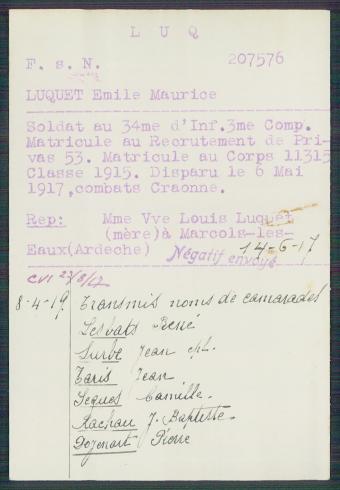 L U Q
F. s. N. 207576
LUQUET Emile Maurice
Soldat au 34me d'Inf.3me Comp.
Matricule au Recrutement de Pri-
vas 53. Matricule au Corps 11315
Classe 1915. Disparu le 6 Mai
1917,combats Craonne.
Rep: Mme Vve Louis Luquet
(mère)à Marcols-les-
Eaux(Ardeche) Négatif envoyé 14-6-17
CVI 27/8/17
8-4-19 Transmis noms de camarades
Lesbats René
Surbe Jean
Taris Jean
Segues Camille
Rachau J. Baptiste
Dozenart Pierre